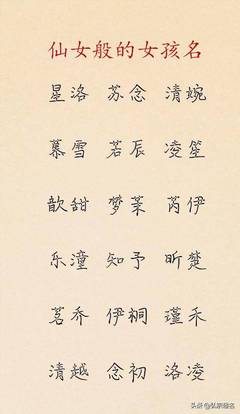 仙女般的女孩名
星洛 苏念 清婉
慕雪 若辰 凌笙
歆甜 梦茉 芮伊
乐潼 知予 昕楚
茗乔 伊桐 瑾禾
清越 念初 洛凌